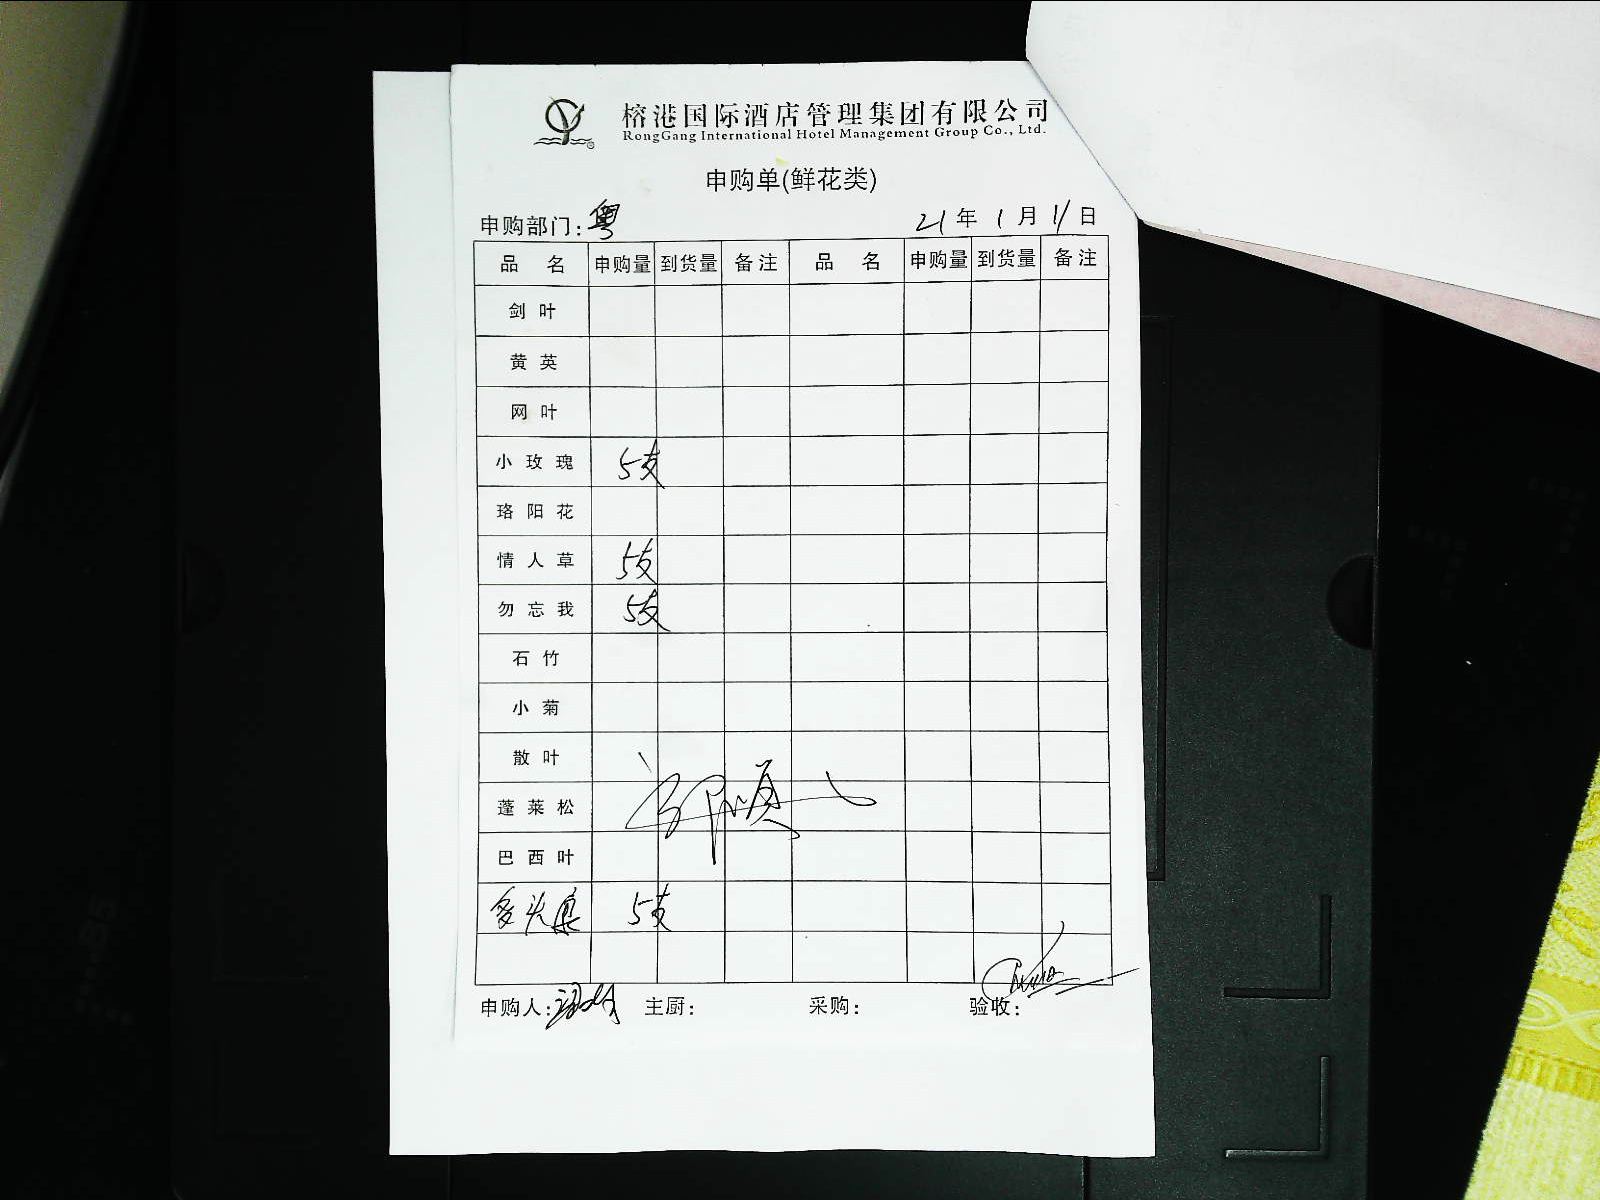 榕港国际酒店管理集团有限公司
RongGang International Hotel Management Group Co., Ltd.
申购单(鲜花类)
申购部门：粤 21年 1月 11日
品 名 申购量 到货量 备注 品 名 申购量 到货量 备注
剑 叶
黄 英
网 叶
小 玫 瑰 5支
珞 阳 花
情 人 草 5支
勿 忘 我 5支
石 竹
小 菊
散 叶
蓬 莱 松
巴 西 叶
多头 5支
申购人： 主厨： 采购： 验收：